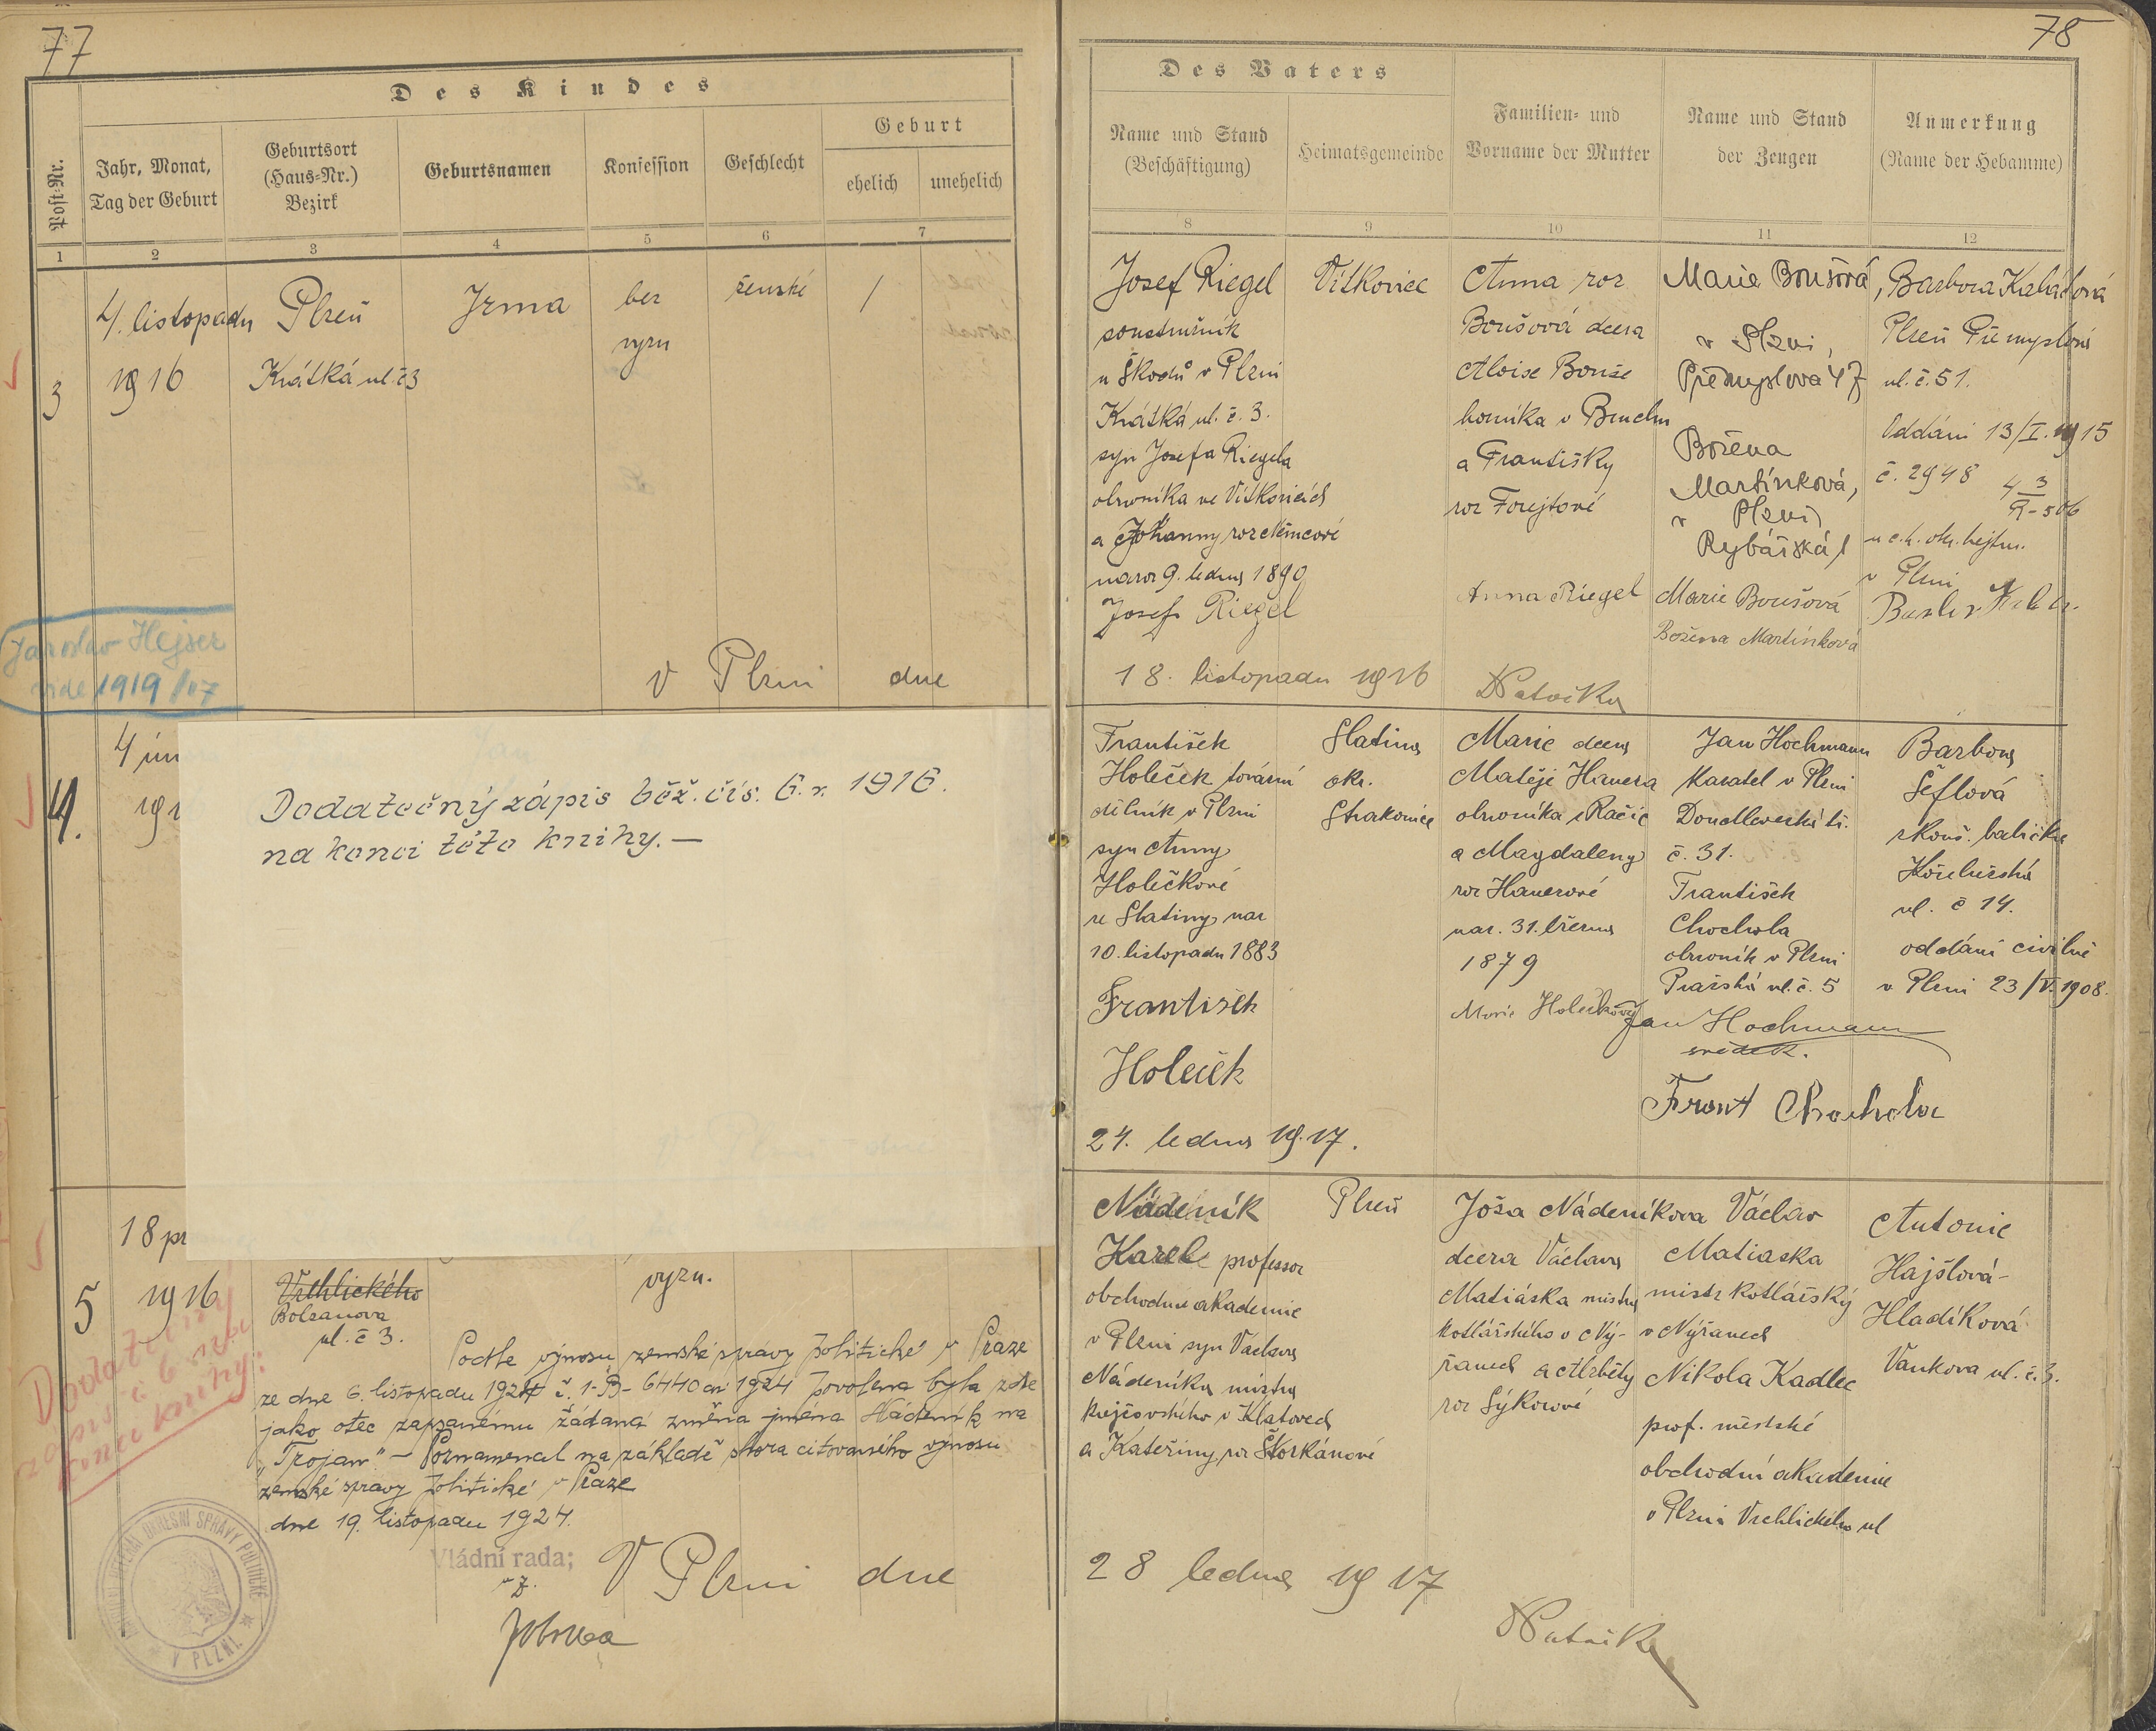 77
78
Des Kindes
Post-Nr.
Jahr, Monat,
Tag der Geburt
Geburtsort
(Haus-Nr.)
Bezirk
Geburtsnamen
Konfession
Geschlecht
Geburt
ehelich
unehelich
1
2
3
4
5
6
7
Des Vaters
Name und Stand
(Beschäftigung)
Heimatsgemeinde
Familien- und
Vorname der Mutter
Name und Stand
der Zeugen
Anmerkung
(Name der Hebamme)
8
9
10
11
12
3
4. listopadu
1916
Plzeň
Krátká ul. č 3
Irma
bez
vyzn
ženské
/
Josef Riegel
soustružník
u Škodů v Plzni
Krátká ul. č. 3.
syn Josefa Riegela
obuvníka ve Vítkovicích
a Johanny roz Němcové
naroz 9. ledna 1890
Josef Riegel
Vítkovice
Anna roz
Boušová dcera
Aloise Bouše
horníka v Bruchu
a Františky
roz Forejtové
Anna Riegel
Marie Boušová,
v Plzni,
Přemyslova 47
Božena
Martínková,
v Plzni
Rybářská
Marie Boušová
Božena Martínková
Barbora
Plzeň Přemyslova
ul. č. 51.
Oddáni 13/I. 1915
č. 2948
u c. k. okr. hejtm.
v Plzni
V Plzni dne
18. listopadu 1916
Jaroslav Hejser
vide 1919/07
4.
4 ún
191
Dodatečný zápis běž. čís. 6. r. 1916.
na konci této knihy. —
František
Holeček tovární
dělník v Plzni
syn Anny
Holečkové
ze Slatiny nar
10. listopadu 1883
František
Holeček
Slatina
okr.
Strakonice
Marie dcera
Matěje Hauera
obuvníka z Račic
a Magdaleny
roz Hauerové
nar. 31. března
1879
Marie Holečková
Jan Hochmann
v Plzni
Doudlevecká tř.
č. 31.
František
Chochola
obuvník v Plzni
Pražská ul. č. 5
Jan Hochmann
svědek.
Frant Chochola
Barbora
Šeflová
zkouš. babička
Koželužská
ul. č 14.
oddáni civilně
v Plzni 23/V. 1908.
24. ledna 1917.
5
18 pr
1916
Vrchlického
Bolzanova
ul. č 3.
vyzn.
Dodatečný
zápis č 6 
konci knihy:
Podle výnosu zemské správy politické v Praze
ze dne 6. listopadu 1924 č. 1-B-6440 ai 1924 povolena byla zde
jako otec zapsanému žádaná změna jména Nádeník na
„Trojan" — Poznamenal na základě shora citovaného výnosu
zemské správy politické v Praze
dne 19. listopadu 1924.
Vládní rada;
v z.
Nádeník
Karel professor
obchodní akademie
v Plzni syn Václava
Nádeníka mistra
krejčovského v Klatovech
a Kateřiny roz Štorkánové
Plzeň
Joža Nádeníkova
dcera Václava
Matiáska mistra
kotlářského v Ný-
řanech a Alžběty
roz Sýkorové
Václav
Matiaska
mistr kotlářský
v Nýřanech
Nikola Kadlec
prof. městské
obchodní akademie
v Plzni Vrchlického ul
Antonie
Hajšlová-
Hladíková
Vaňkova ul. č. 3.
V Plzni dne
28 ledna 1917
V PLZNI